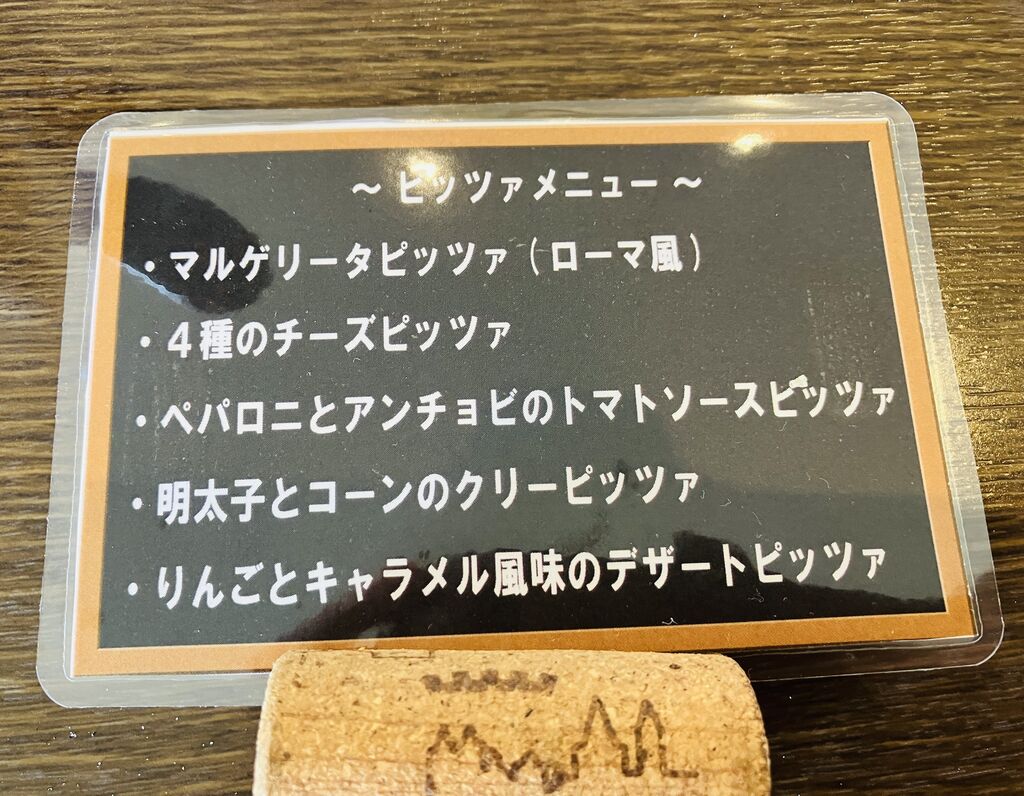 ～ ピッツァメニュー ～
・マルゲリータピッツァ（ローマ風）
・４種のチーズピッツァ
・ペパロニとアンチョビのトマトソースピッツァ
・明太子とコーンのクリーピッツァ
・りんごとキャラメル風味のデザートピッツァ